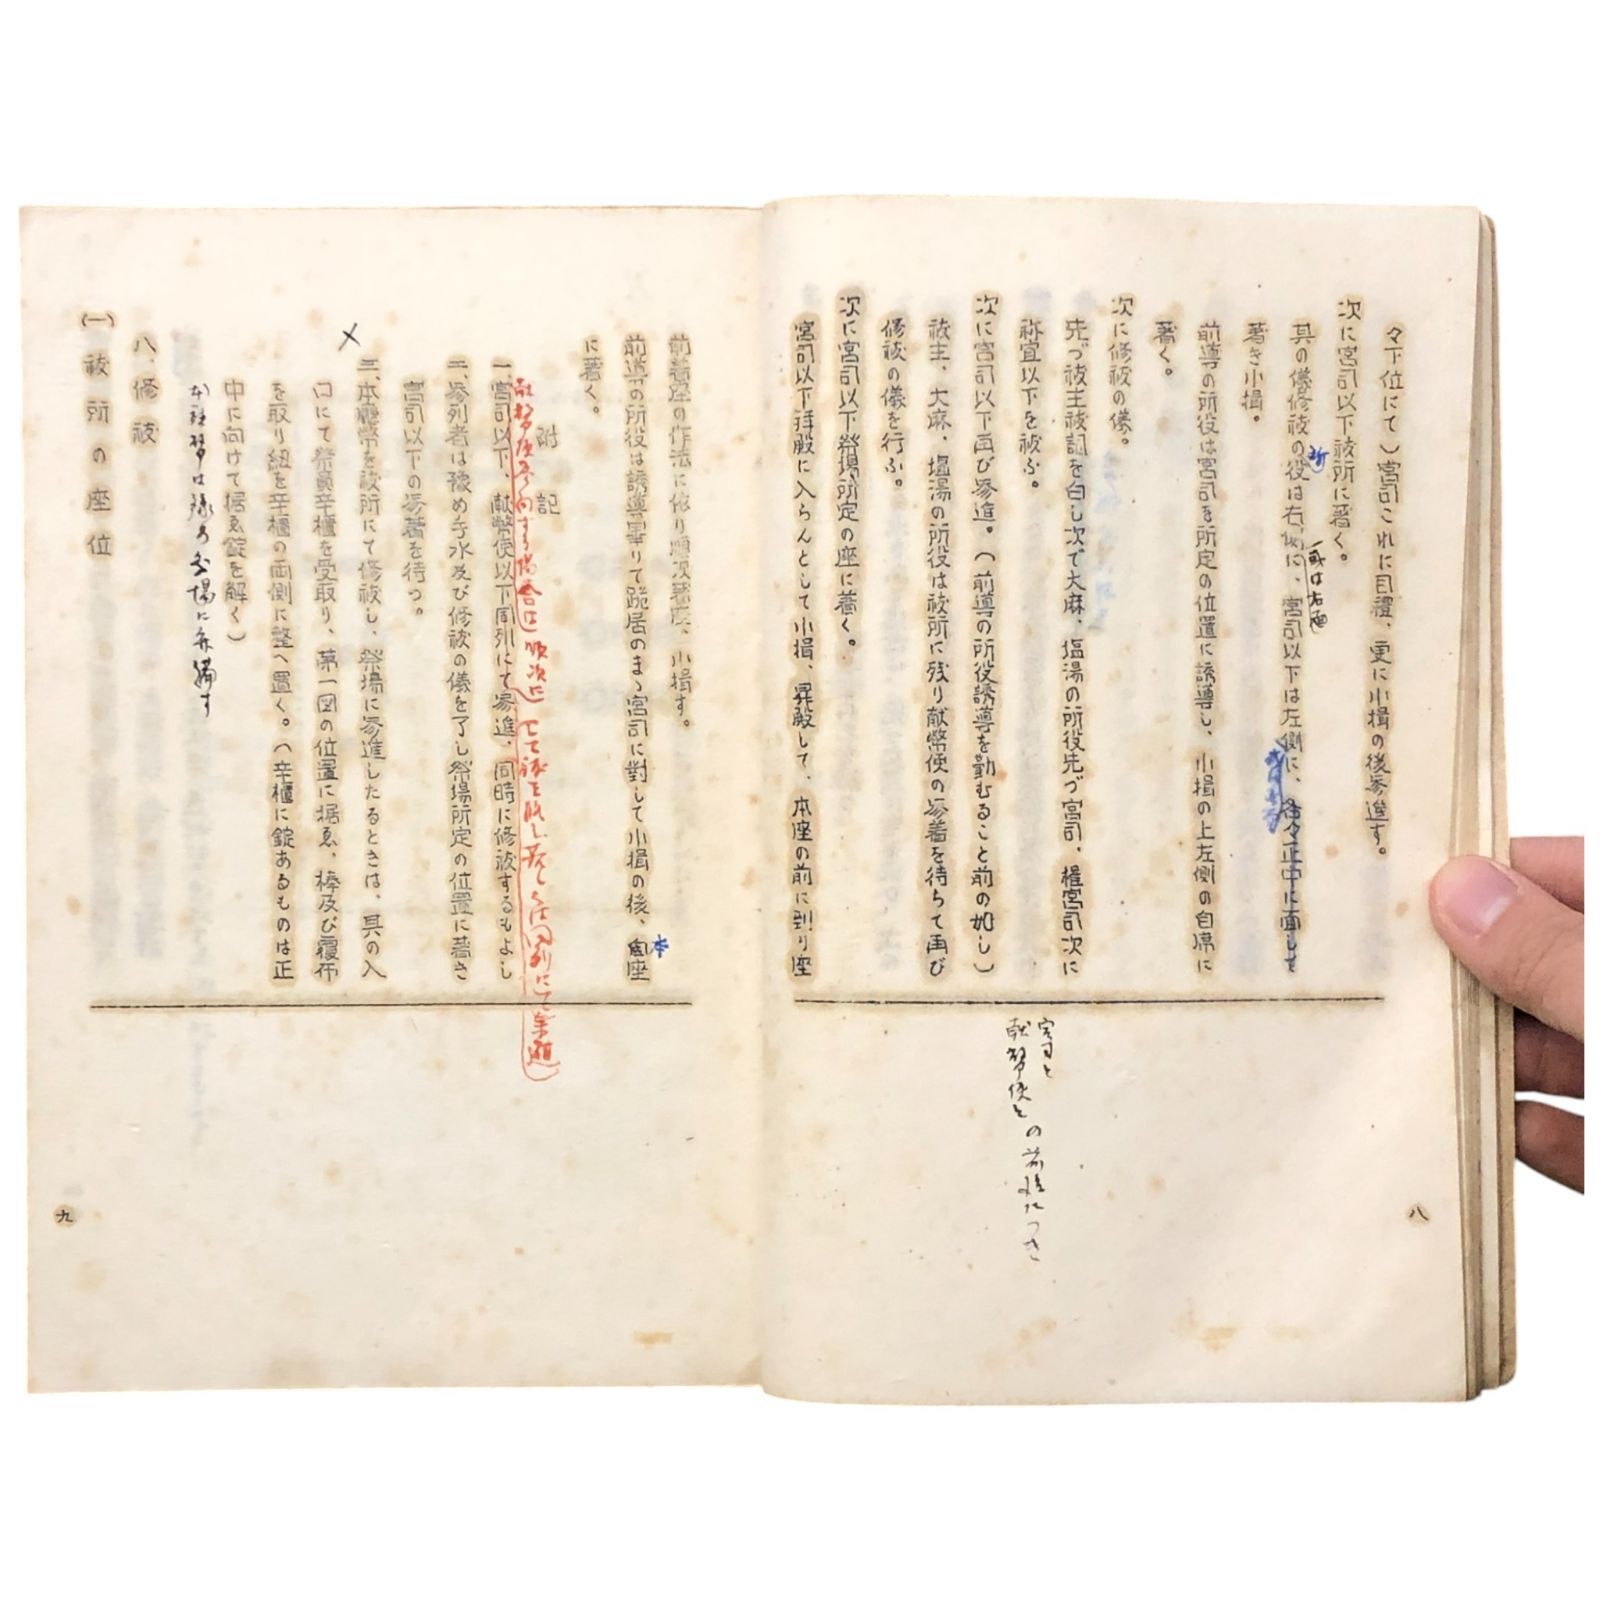 々下位にて)宮司これに目禮、更に小揖の後參進す。
次に宮司以下祓所に著く。
其の儀修祓の役は右側に、宮司以下は左側に、各々正中に面して
所
或は右面
著き小揖。
前導の所役は宮司を所定の位置に誘導し、小揖の上左側の自席に
著く。
次に修祓の儀。
先づ祓主祓詞を白し次で大麻、塩湯の所役先づ宮司、権宮司次に
祢宜以下を祓ふ。
次に宮司以下再び參進。(前導の所役誘導を勤むること前の如し)
祓主、大麻、塩湯の所役は祓所に残り献幣使の參著を待ちて再び
修祓の儀を行ふ。
次に宮司以下祭場所定の座に著く。
宮司以下拜殿に入らんとして小揖、昇殿して、本座の前に到り座
宮司と
献幣使との前後につき
八
前著座の作法に依り順次著座、小揖す。
前導の所役は誘導畢りて跪居のまゝ宮司に對して小揖の後、座
本
に著く。
附記
一、宮司以下、献幣使以下同列にて參進、同時に修祓するもよし
二、參列者は豫め手水及び修祓の儀を了し祭場所定の位置に著き
宮司以下の參著を待つ。
三、本廳幣を祓所にて修祓し、祭場に參進したるときは、其の入
口にて祭員辛櫃を受取り、第一図の位置に据ゑ、棒及び覆布
を取り紐を辛櫃の両側に整へ置く。(辛櫃に錠あるものは正
中に向けて据ゑ錠を解く)
八、修祓
(一)祓所の座位
九